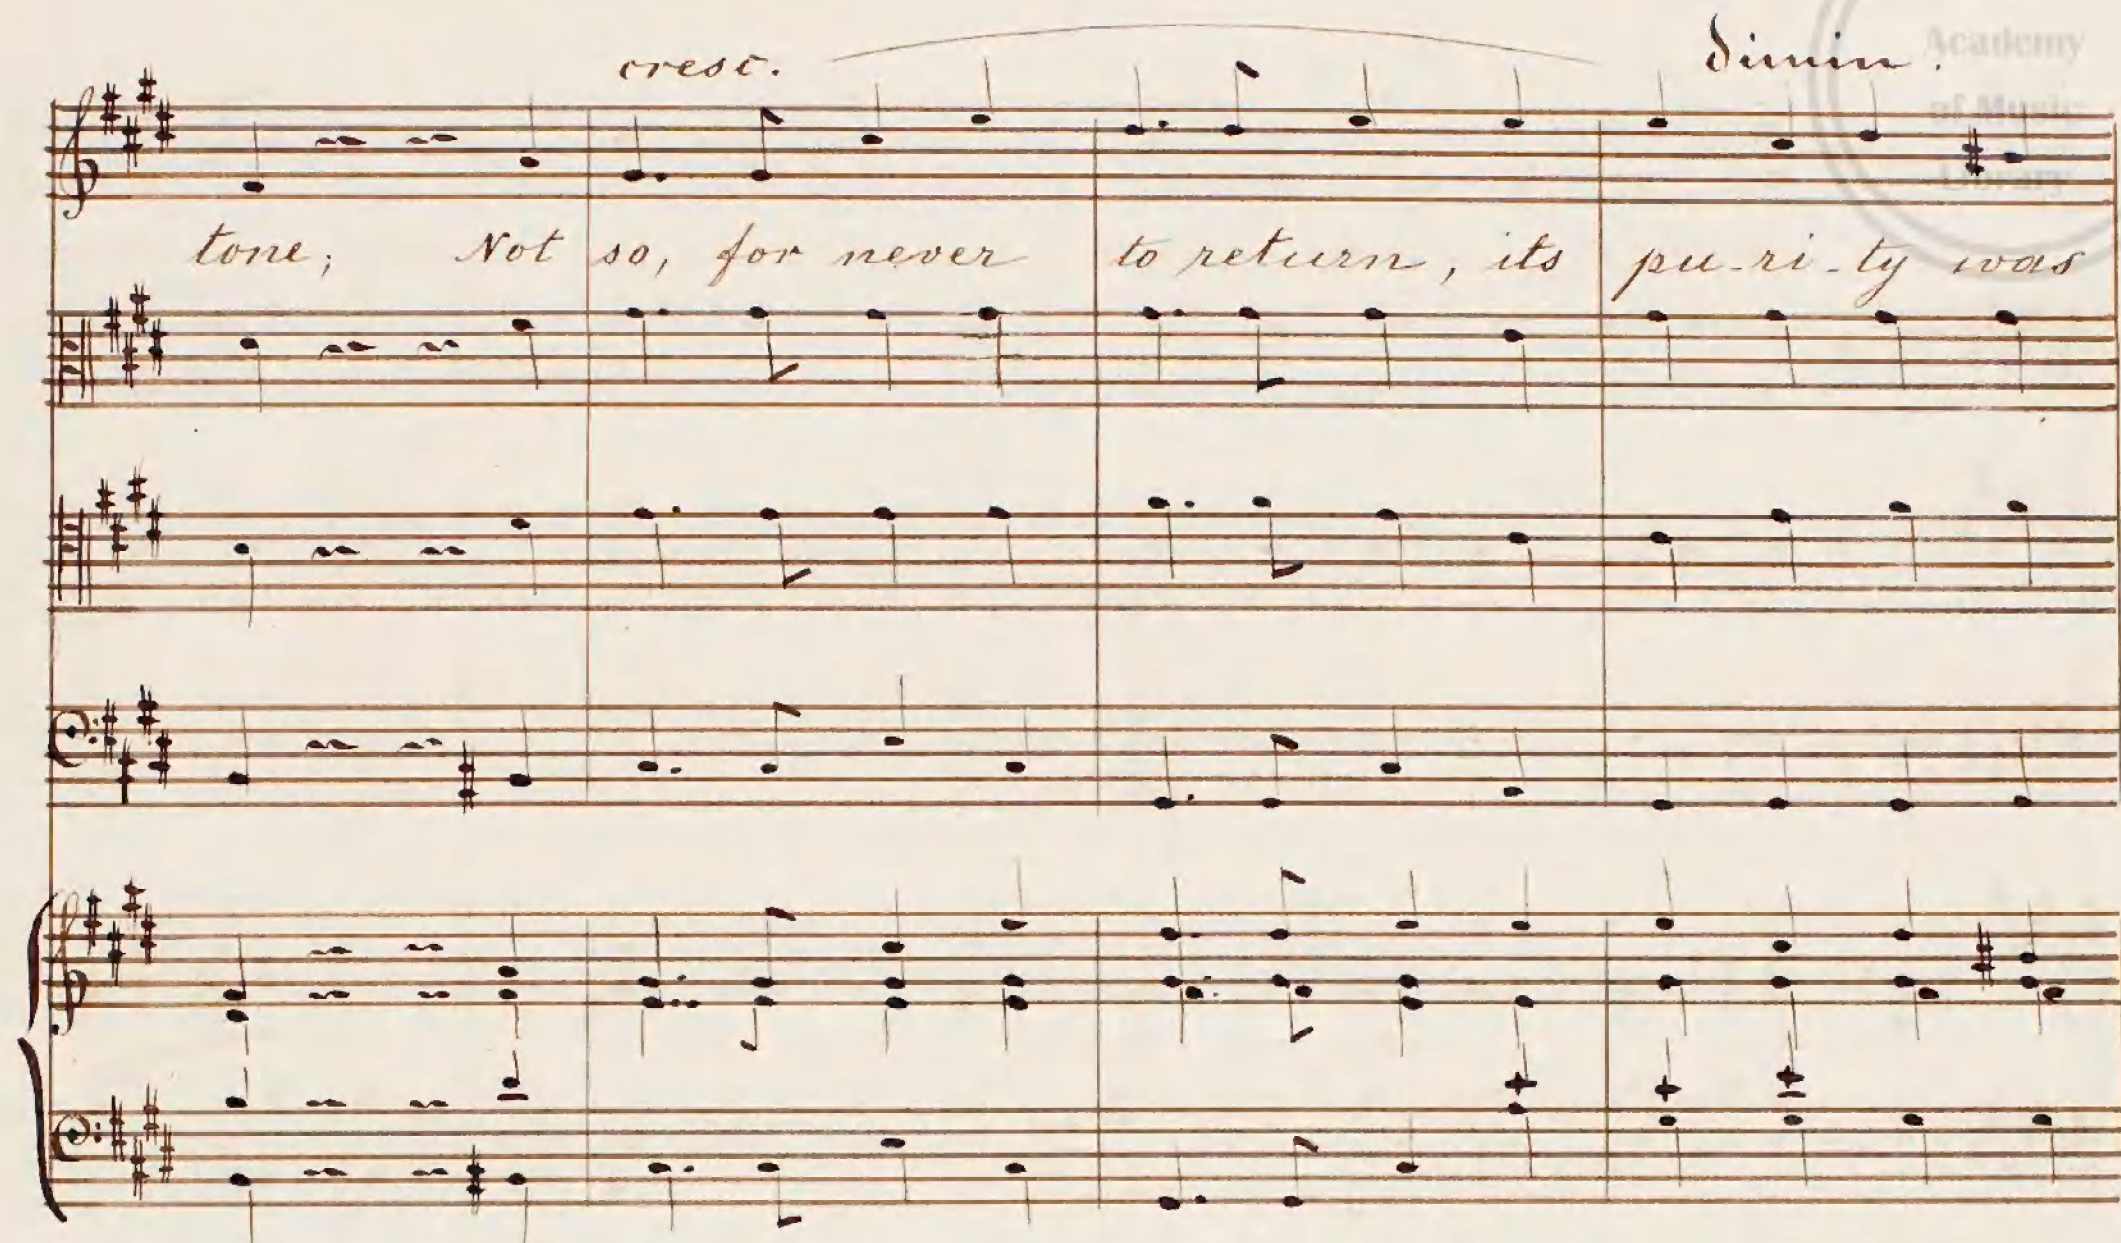 cresc.
dimin.
Academy
of Music
Library
tone; Not so, for never to return, its pu-ri-ty was